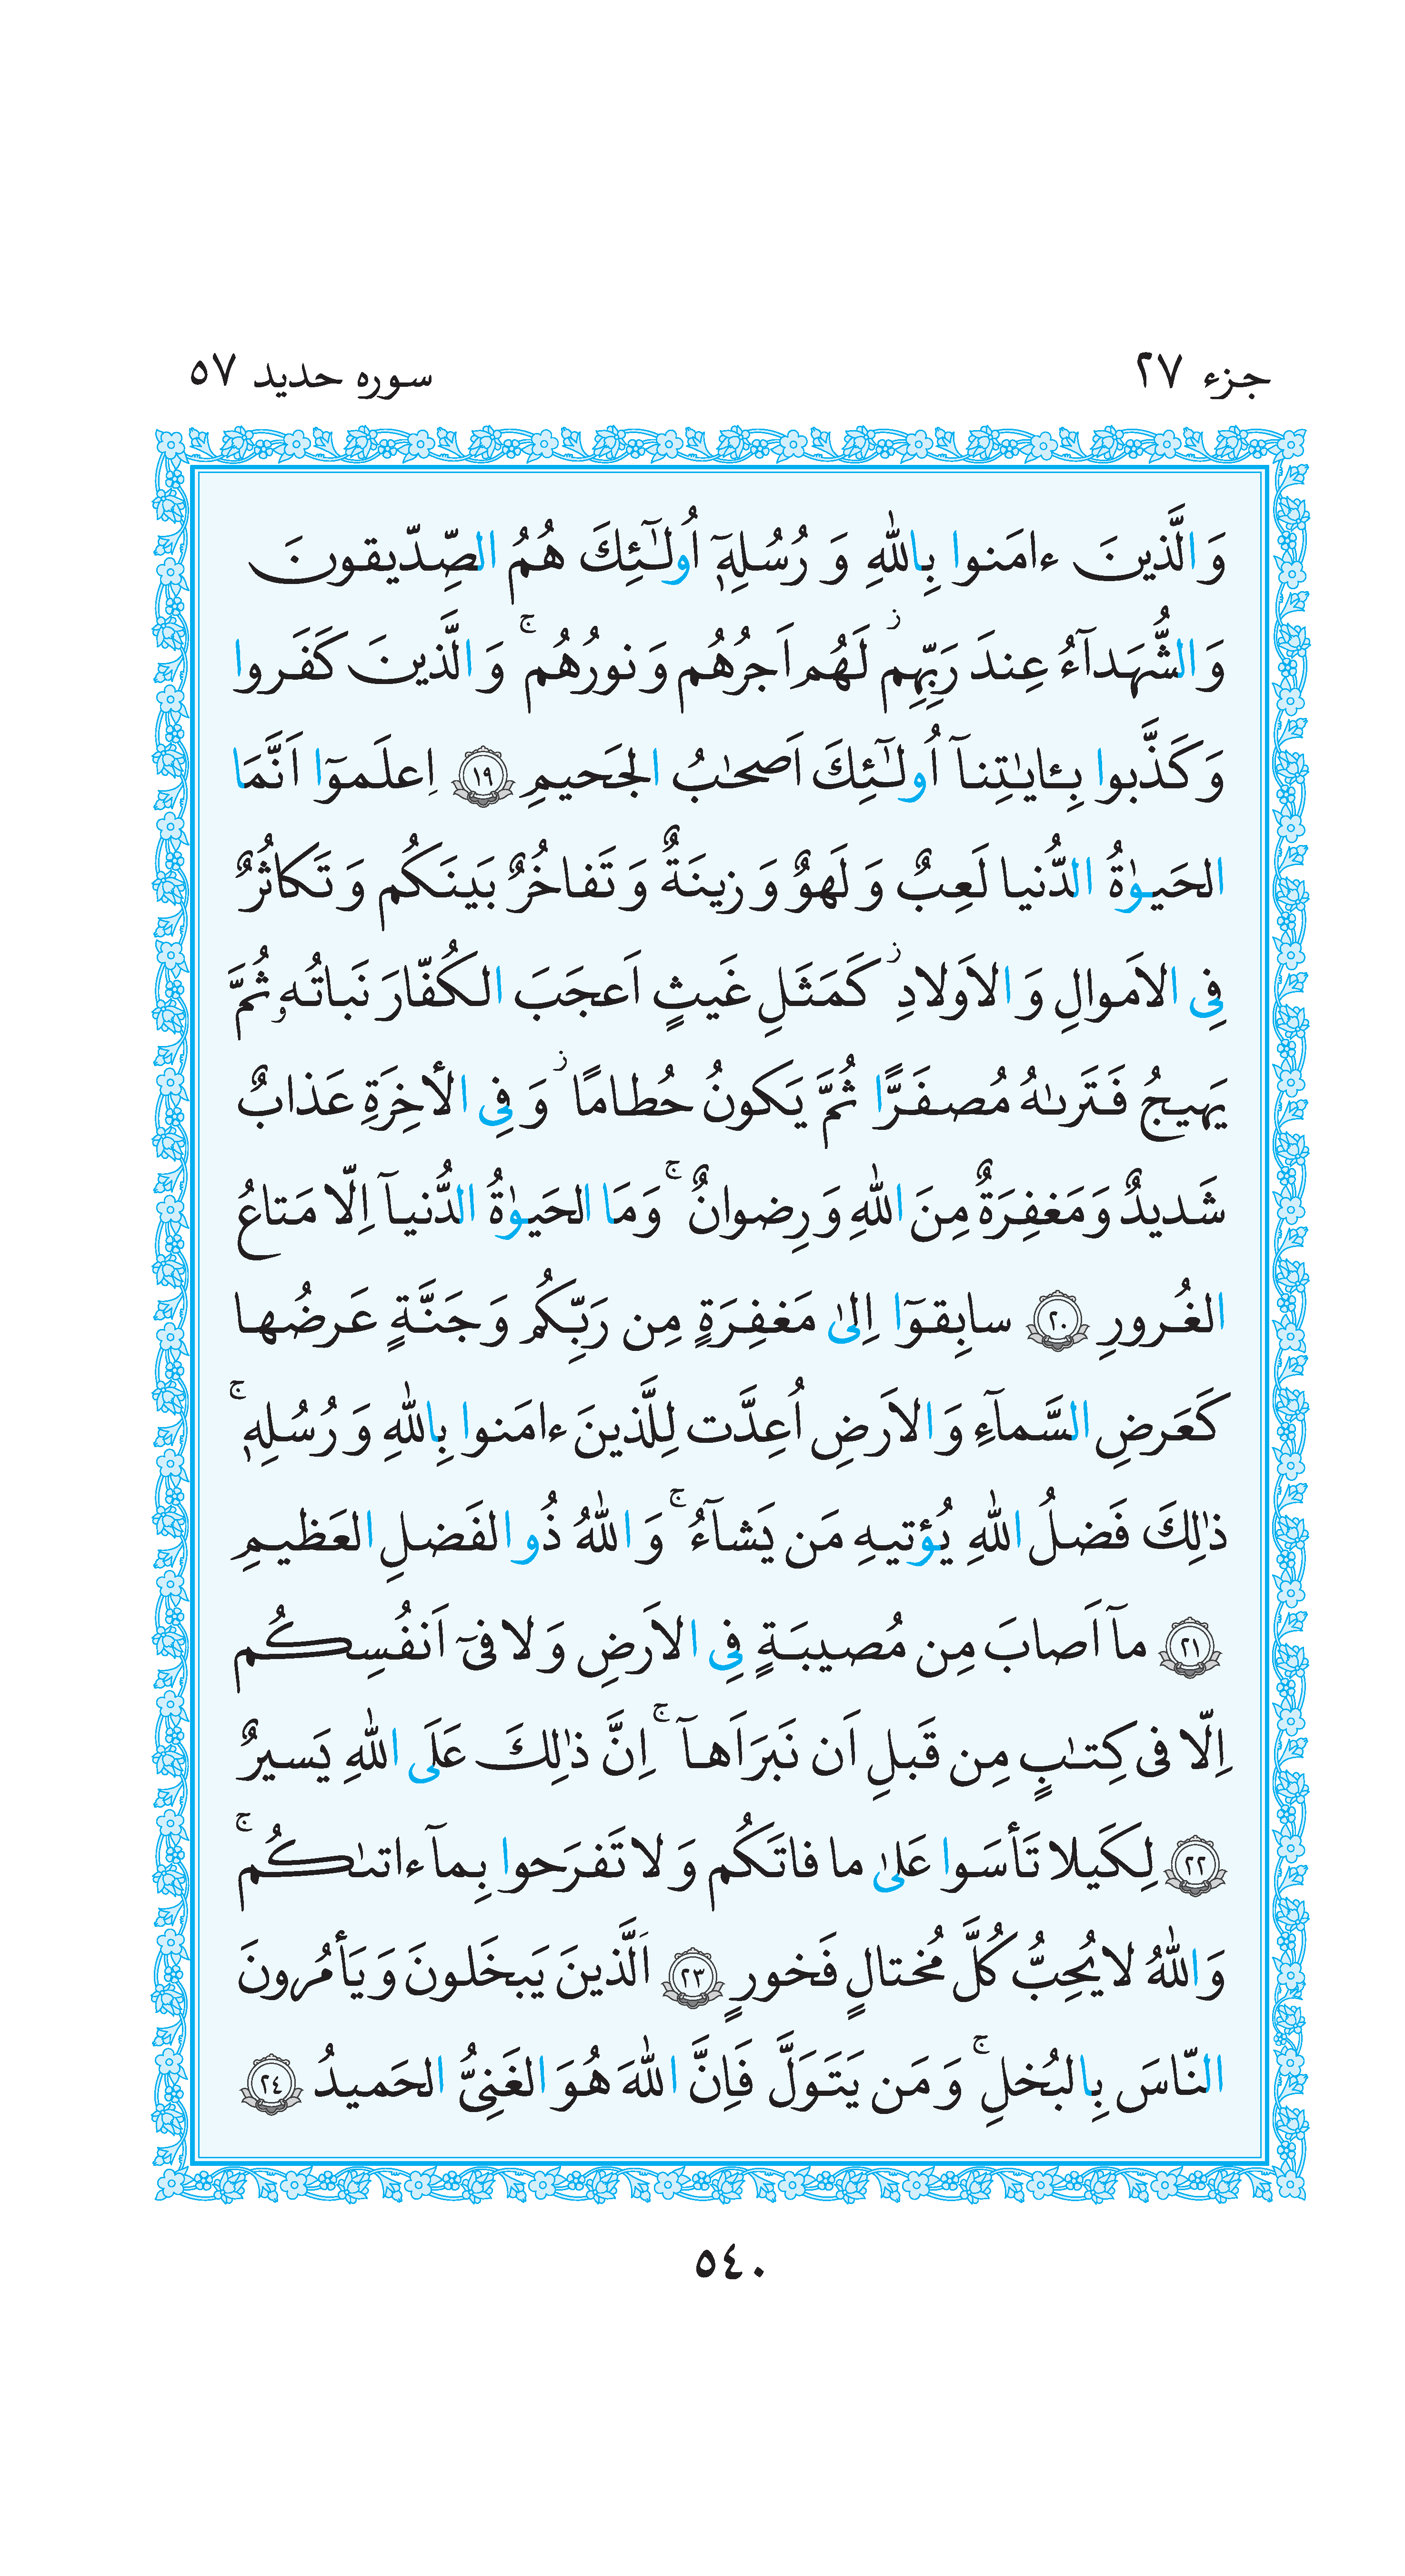 جزء ٢٧
سوره حدید ٥٧
وَ الَّذينَ ءامَنوا بِاللّٰهِ وَ رُسُلِهٖٓ اُولٰٓئِكَ هُمُ الصِّدّيقونَ
وَ الشُّهَدآءُ عِندَ رَبِّهِم ز لَهُم اَجرُهُم وَ نورُهُم ج وَ الَّذينَ كَفَروا
وَ كَذَّبوا بِـٔايٰتِنآ اُولٰٓئِكَ اَصحٰبُ الجَحيمِ ١٩ اِعلَموٓا اَنَّمَا
الحَيوٰةُ الدُّنيا لَعِبٌ وَ لَهوٌ وَ زينَةٌ وَ تَفاخُرٌ بَينَكُم وَ تَكاثُرٌ
فِى الاَموالِ وَ الاَولادِ ز كَمَثَلِ غَيثٍ اَعجَبَ الكُفّارَ نَباتُهٗ ثُمَّ
يَهيجُ فَتَرٰىهُ مُصفَرًّا ثُمَّ يَكونُ حُطامًا ز وَ فِى الأخِرَةِ عَذابٌ
شَديدٌ وَ مَغفِرَةٌ مِنَ اللّٰهِ وَ رِضوانٌ ج وَ مَا الحَيوٰةُ الدُّنيآ اِلّا مَتاعُ
الغُرورِ ٢٠ سابِقوٓا اِلىٰ مَغفِرَةٍ مِن رَبِّكُم وَ جَنَّةٍ عَرضُها
كَعَرضِ السَّمآءِ وَ الاَرضِ اُعِدَّت لِلَّذينَ ءامَنوا بِاللّٰهِ وَ رُسُلِهٖ ج
ذٰلِكَ فَضلُ اللّٰهِ يُؤتيهِ مَن يَشآءُ ج وَ اللّٰهُ ذُو الفَضلِ العَظيمِ
٢١ مآ اَصابَ مِن مُصيبَةٍ فِى الاَرضِ وَ لا فىٓ اَنفُسِكُم
اِلّا فى كِتٰبٍ مِن قَبلِ اَن نَبرَاَهآ ج اِنَّ ذٰلِكَ عَلَى اللّٰهِ يَسيرٌ
٢٢ لِكَيلا تَأسَوا عَلىٰ ما فاتَكُم وَ لا تَفرَحوا بِمآ ءاتىٰكُم ج
وَ اللّٰهُ لا يُحِبُّ كُلَّ مُختالٍ فَخورٍ ٢٣ اَلَّذينَ يَبخَلونَ وَ يَأمُرونَ
النّاسَ بِالبُخلِ ج وَ مَن يَتَوَلَّ فَاِنَّ اللّٰهَ هُوَ الغَنِىُّ الحَميدُ ٢٤
٥٤٠